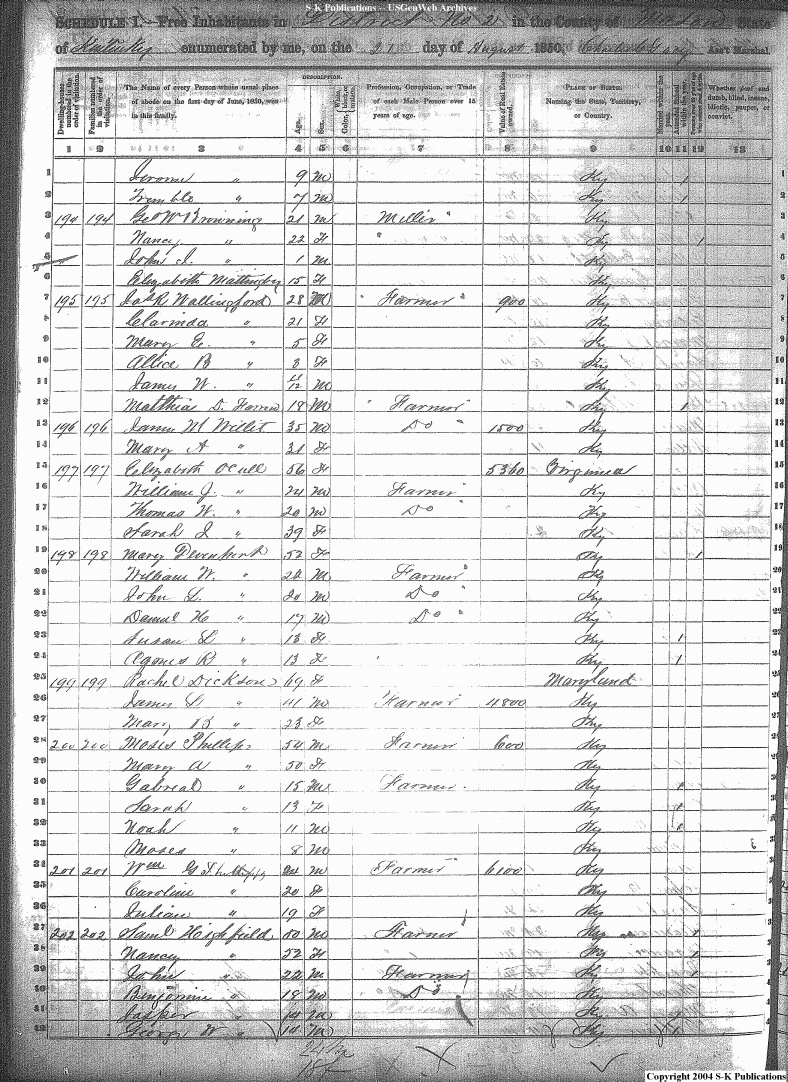 S-K Publications -- USGenWeb Archives
SCHEDULE I.—Free Inhabitants in District No 2 in the County of State
of Kentucky enumerated by me, on the 21 day of August 1850. Ass't Marshal.
DESCRIPTION.
Dwelling-houses numbered in the order of visitation. Families numbered in the order of visitation. The Name of every Person whose usual place of abode on the first day of June, 1850, was in this family. Age. Sex. Color, White, black, or mulatto. Profession, Occupation, or Trade of each Male Person over 15 years of age. Value of Real Estate owned. PLACE OF BIRTH. Naming the State, Territory, or Country. Married within the year. Whether deaf and dumb, blind, insane, idiotic, pauper, or convict.
1 2 3 4 5 6 7 8 9 10 11 12 13
1 Jerome " 9 M Ky 1 1
2 Trimble " 7 M Ky 1 2
3 194 194 Geo W Browning 21 M Miller " Ky 3
4 Nancy " 22 F " Ky 1 4
5 John J. " 1 M Ky 5
6 Elizabeth Mattingly 15 F Ky 6
7 195 195 R Wallingford 28 M " Farmer " 900 Ky 7
8 Clarinda " 21 F Ky 8
9 Mary E. " 5 F Ky 9
10 Allice B " 3 F Ky 10
11 James W. " 11/12 M Ky 11
12 Matthias D. Farrow 18 M " Farmer Ky 1 12
13 196 196 James M Willit 35 M Do " 1500 Ky 13
14 Mary A " 31 F Ky 14
15 197 197 Elizabeth Ocull 56 F 5360 Virginia 15
16 William J. " 24 M Farmer Ky 16
17 Thomas W. " 20 M Do Ky 17
18 Sarah J " 39 F Ky 18
19 198 198 Mary Devenport 52 F Ky 1 19
20 William W. " 22 M Farmer " Ky 20
21 John L. " 20 M Do " Ky 21
22 Daniel H " 17 M Do " Ky 22
23 Susan L " 15 F Ky 1 23
24 Agness R " 13 F Ky 1 24
25 199 199 Rachel Dickson 69 F Maryland 25
26 James " M Farmer 4800 Ky 26
27 Mary B " 23 F Ky 27
28 200 200 Moses Phillips 54 M Farmer 600 Ky 28
29 Mary A " 50 F Ky 29
30 Gabreal " 15 M Farmer Ky 1 30
31 Sarah " 13 F Ky 1 31
32 Noah " 11 M Ky 1 32
33 Moses " 8 M Ky
34 201 201 Wm G 24 M Farmer " 6100 Ky
35 Caroline " 20 F Ky
36 Julian " 19 F Ky
37 202 202 Saml Highfield 50 M Farmer Ky 1
38 Nancy " 52 F Ky 1
39 John " 22 M Farmer Ky 1
40 Benjamine " 18 M " Do " Ky
41 Jasper " 14 M Ky 1
42 George W " M Ky 1
Copyright 2004 S-K Publications